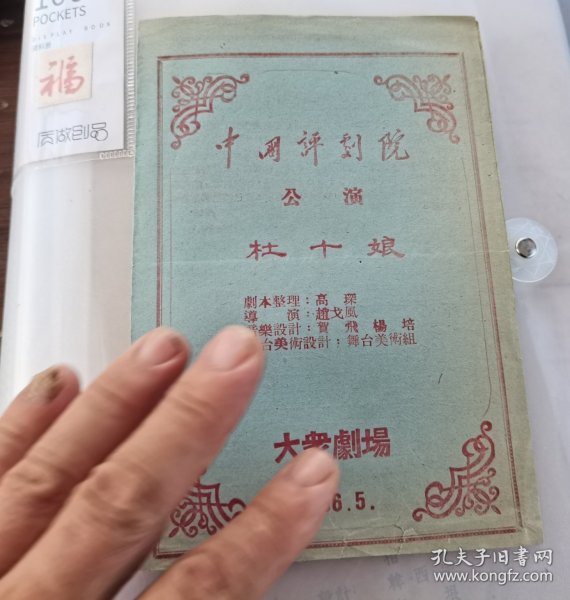 POCKETS
DISPLAY BOOK
資料册
福
中国評劇院
公演
杜十娘
劇本整理：高琛
導演：趙戈風
音樂設計：賀飛 楊培
台美術設計：舞台美術組
大衆劇場
6.5.
孔夫子旧书网
www.kongfz.com